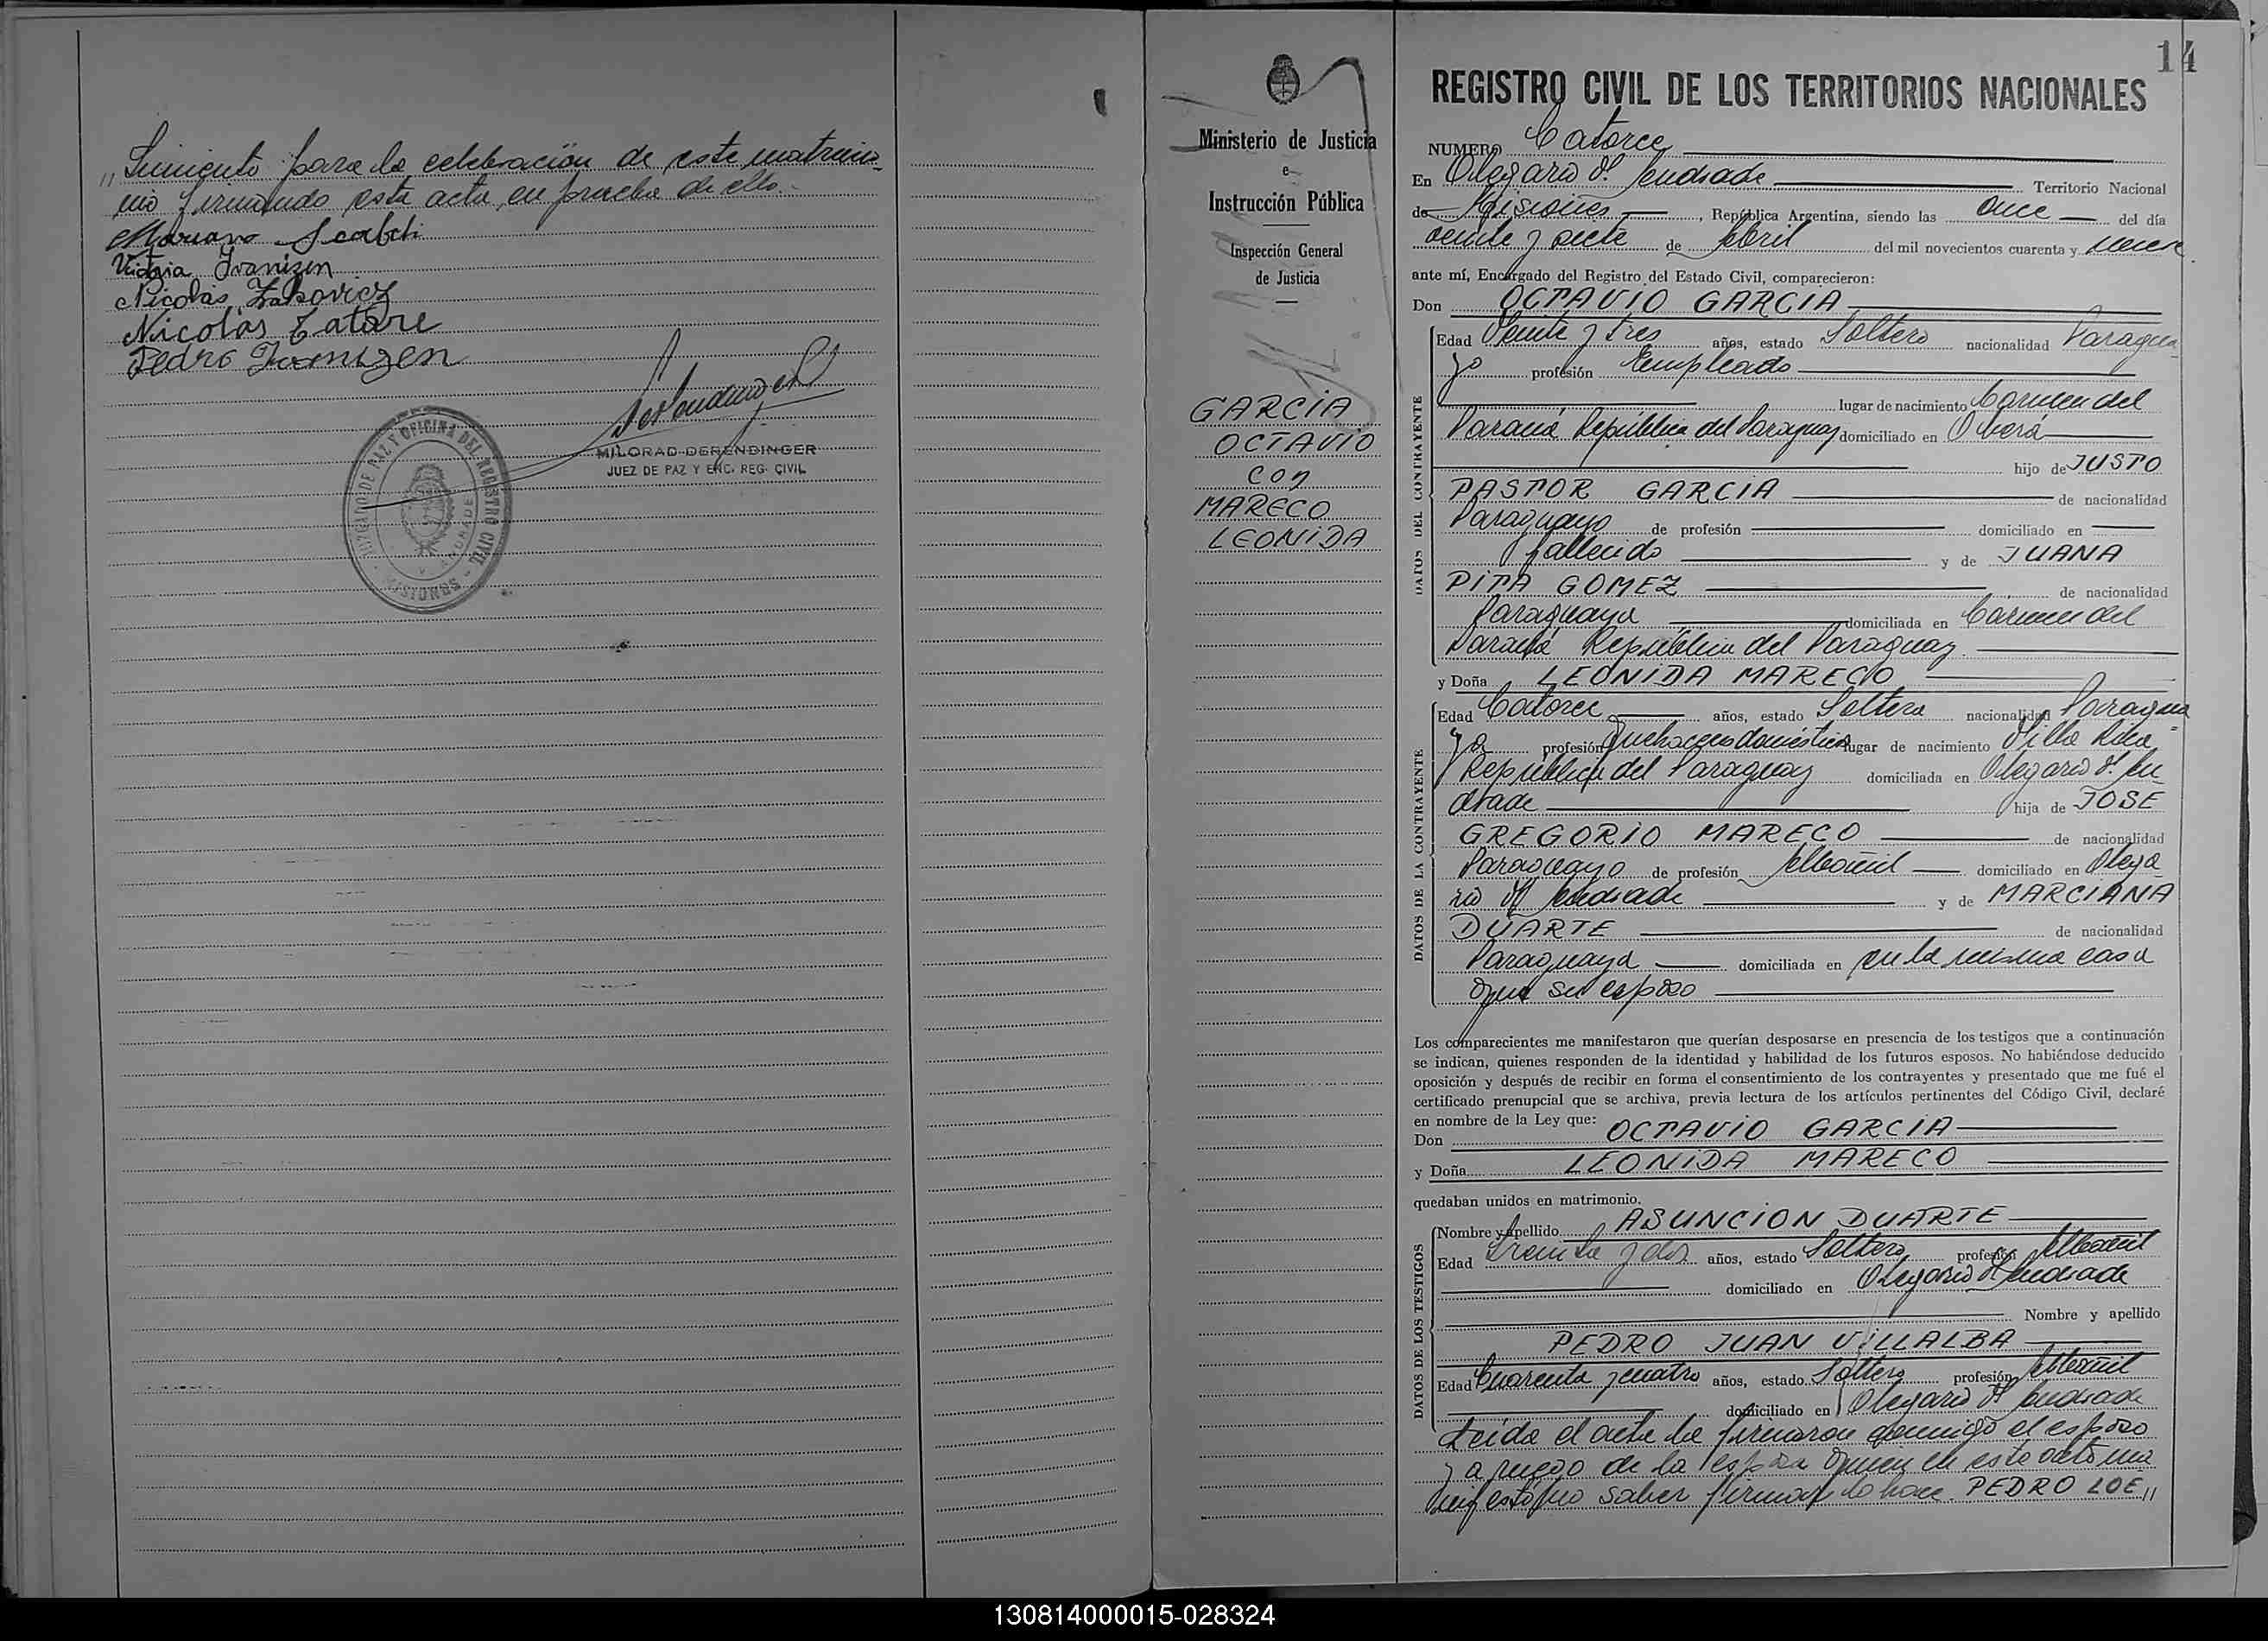 "Simiento para la celebración de este matrimo-
nio firmando esta acta en prueba de ello.-
Mariano
Victoria Ivanizen
Nicolás Zakovicz
Nicolás Tatare
Pedro Ivanizen
MILORAD DERENDINGER
JUEZ DE PAZ Y ENC. REG. CIVIL
JUZGADO DE PAZ Y OFICINA DEL REGISTRO CIVIL
- MISIONES -
14
Ministerio de Justicia
e
Instrucción Pública
Inspección General
de Justicia
GARCIA
OCTAVIO
con
MARECO
LEONIDA
REGISTRO CIVIL DE LOS TERRITORIOS NACIONALES
NUMERO Catorce
En Olegario V. Andrade Territorio Nacional
de Misiones, República Argentina, siendo las once del día
veinte y siete de Abril del mil novecientos cuarenta y nueve
ante mí, Encargado del Registro del Estado Civil, comparecieron:
Don OCTAVIO GARCIA
DATOS DEL CONTRAYENTE
Edad Veinte y tres años, estado Soltero nacionalidad Paragua
yo profesión Empleado
lugar de nacimiento Carmen del
Paraná República del Paraguay domiciliado en Oberá
hijo de JUSTO
PASTOR GARCIA de nacionalidad
Paraguayo de profesión domiciliado en
fallecido y de JUANA
PITA GOMEZ de nacionalidad
Paraguaya domiciliada en Cármen del
Paraná República del Paraguay
y Doña LEONIDA MARECO
DATOS DE LA CONTRAYENTE
Edad Catorce años, estado Soltera nacionalidad Paragua
ya profesión Quehaceres domésticos lugar de nacimiento Villa Rica-
República del Paraguay domiciliada en Olegario V. An-
drade hija de JOSE
GREGORIO MARECO de nacionalidad
Paraguayo de profesión Albañil domiciliado en Olega-
rio V. Andrade y de MARCIANA
DUARTE de nacionalidad
Paraguaya domiciliada en en la misma casa
que su esposo
Los comparecientes me manifestaron que querían desposarse en presencia de los testigos que a continuación
se indican, quienes responden de la identidad y habilidad de los futuros esposos. No habiéndose deducido
oposición y después de recibir en forma el consentimiento de los contrayentes y presentado que me fué el
certificado prenupcial que se archiva, previa lectura de los artículos pertinentes del Código Civil, declaré
en nombre de la Ley que:
Don OCTAVIO GARCIA
y Doña LEONIDA MARECO
quedaban unidos en matrimonio.
DATOS DE LOS TESTIGOS
Nombre y apellido ASUNCION DUARTE
Edad treinta y dos años, estado Soltero profesión Albañil
domiciliado en Olegario V. Andrade
Nombre y apellido
PEDRO JUAN VILLALBA
Edad Cuarenta y cuatro años, estado Soltero profesión Albañil
domiciliado en Olegario V. Andrade
Leida el acta la firmaron conmigo el esposo
y a ruego de la esposa quien en este acto ma
nifestó no saber firmar lo hace. PEDRO LOE"
130814000015-028324